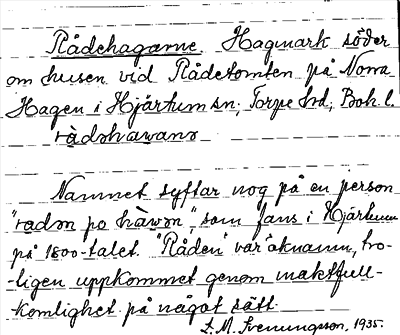 Rådehagarne. Hagmark söder
om husen vid Rådetomten på Norra
Hagen i Hjärtum sn, Torpe hd, Boh. l.
rådshawans
Namnet syftar nog på en person
"radon po håwon", som fans i Hjärtum
på 1800-talet. "Råden" var öknamn, tro-
-ligen uppkommet genom maktfull-
-komlighet på något sätt.
S. M. Svenungson, 1935.